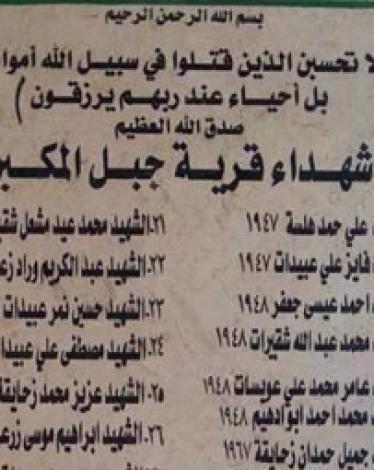 بسم الله الرحمن الرحيم
لا تحسبن الذين قتلوا في سبيل الله أموا
بل أحياء عند ربهم يرزقون )
صدق الله العظيم
شهداء قرية جبل المكبر
علي حمد هلسة ١٩٤٧
فايز علي عبيدات ١٩٤٧
احمد عيسى جعفر ١٩٤٨
محمد عبد الله شقيرات ١٩٤٨
عامر محمد علي عويسات ١٩٤٨
محمد احمد ابو ادهيم ١٩٤٨
جميل حمدان زحايقة ١٩٦٧
٢١.الشهيد محمد عيد مشعل شقي
٢٢.الشهيد عبد الكريم وراد زع
٢٣.الشهيد حسين نمر عبيدات
٢٤.الشهيد مصطفى علي عبيدا
٢٥.الشهيد عزيز محمد زحايقة
٢٦.الشهيد ابراهيم موسى زرع